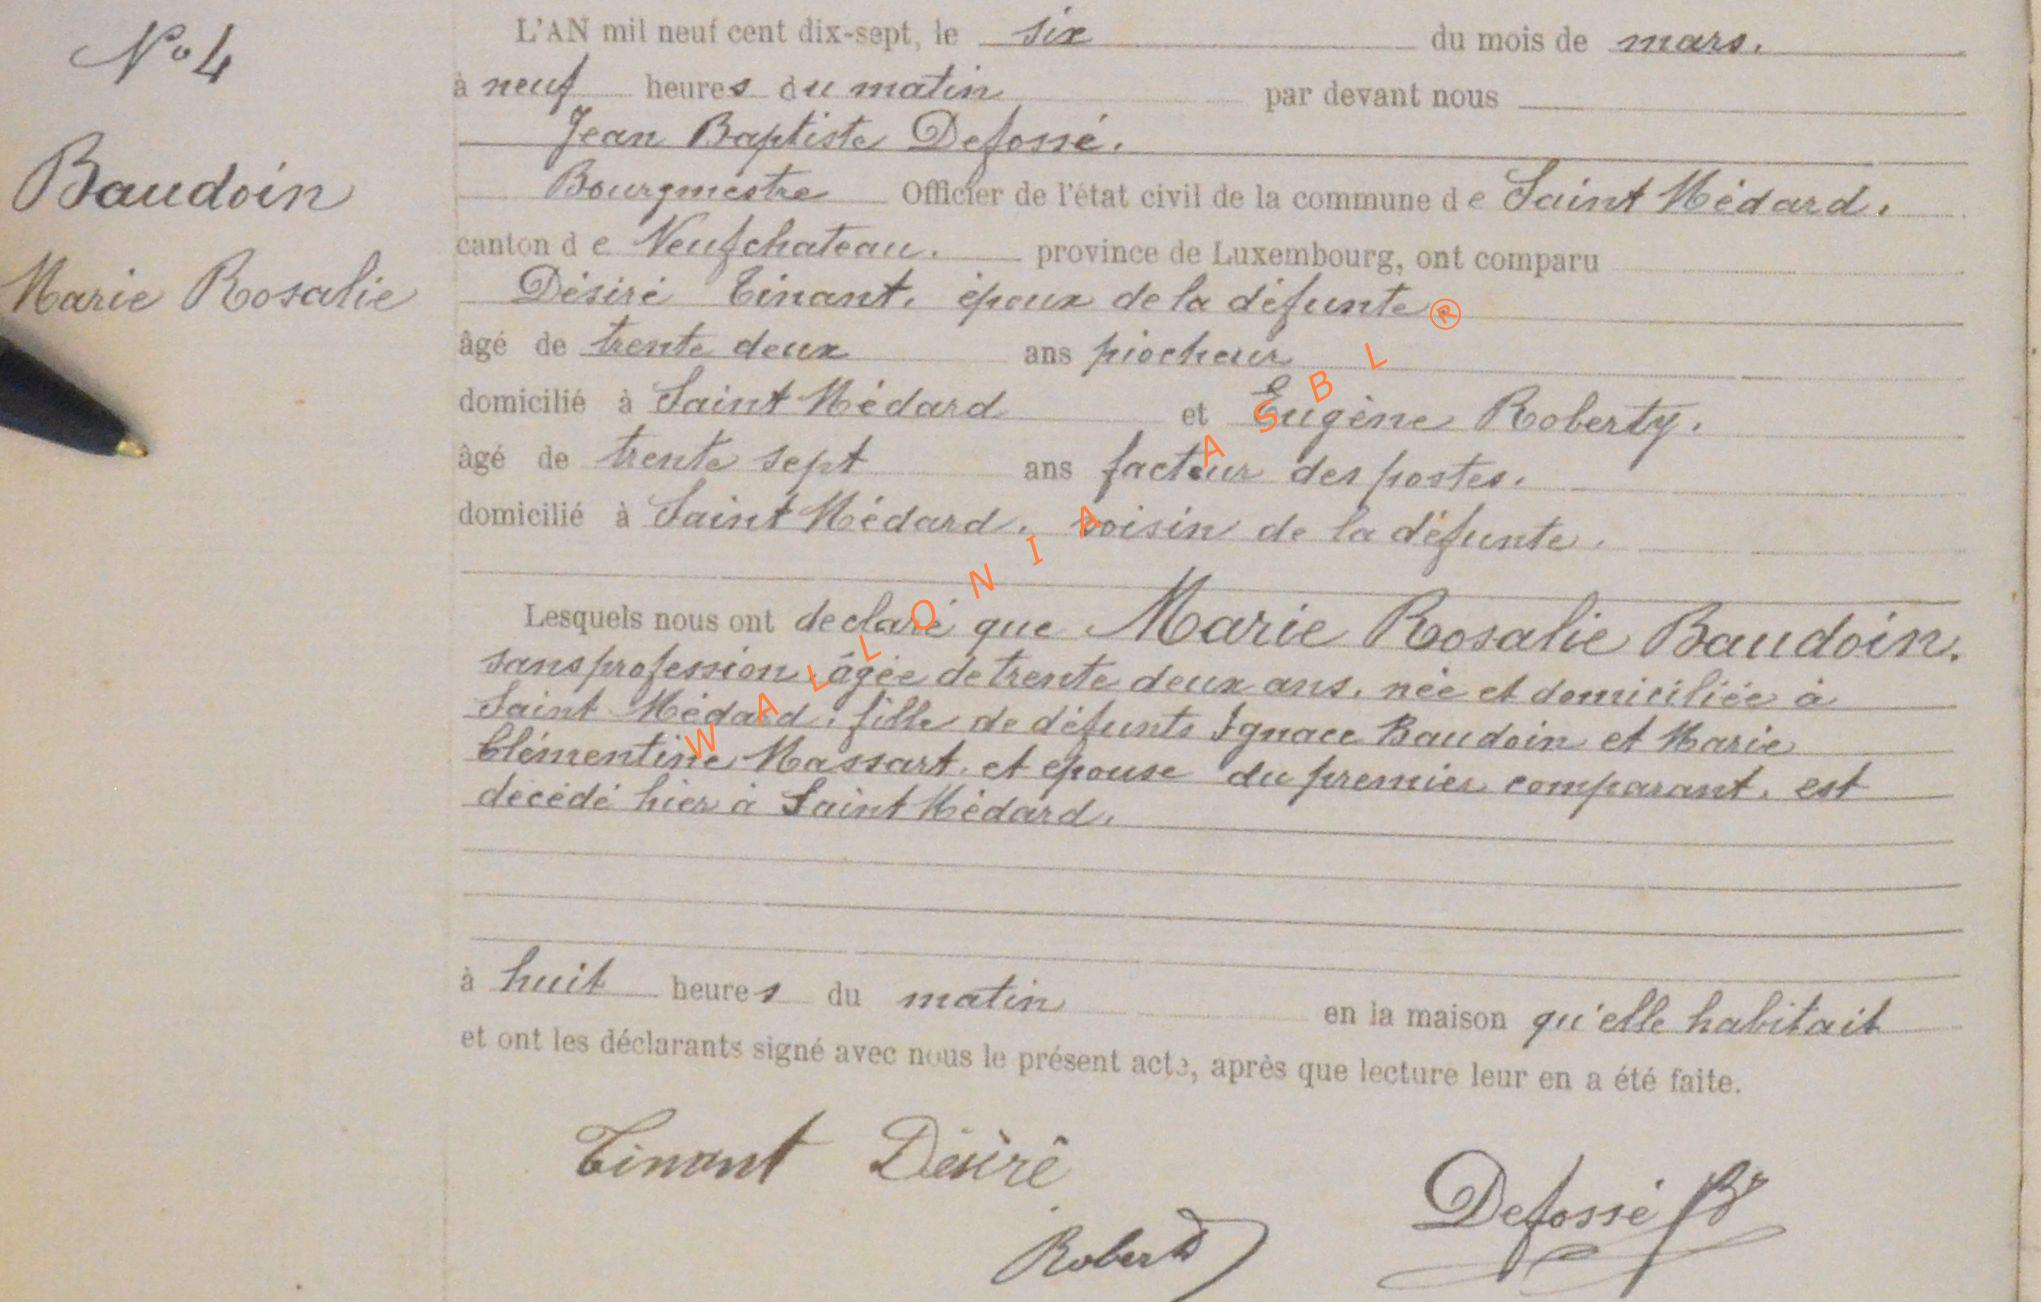 N° 4
Baudoin
Marie Rosalie
L'AN mil neuf cent dix-sept, le six du mois de mars.
à neuf heures du matin par devant nous
Jean Baptiste Defossé.
Bourgmestre Officier de l'état civil de la commune de Saint Médard.
canton de Neufchateau. province de Luxembourg, ont comparu
Désiré Tinant. époux de la défunte
âgé de trente deux ans piocheur
domicilié à Saint Médard et Eugène Roberty.
âgé de trente sept ans facteur des postes.
domicilié à Saint Médard. voisin de la défunte.
Lesquels nous ont declaré que Marie Rosalie Baudoin.
sans profession, âgée de trente deux ans. née et domiciliée à
Saint Médard, fille de défunts Ignace Baudoin et Marie
Clémentine Massart. et épouse du premier comparant. est
décédé hier à Saint Médard.
à huit heures du matin en la maison qu'elle habitait
et ont les déclarants signé avec nous le présent acte, après que lecture leur en a été faite.
Tinant Désiré
Roberty
Defossé
WALLONIA ASBL ®